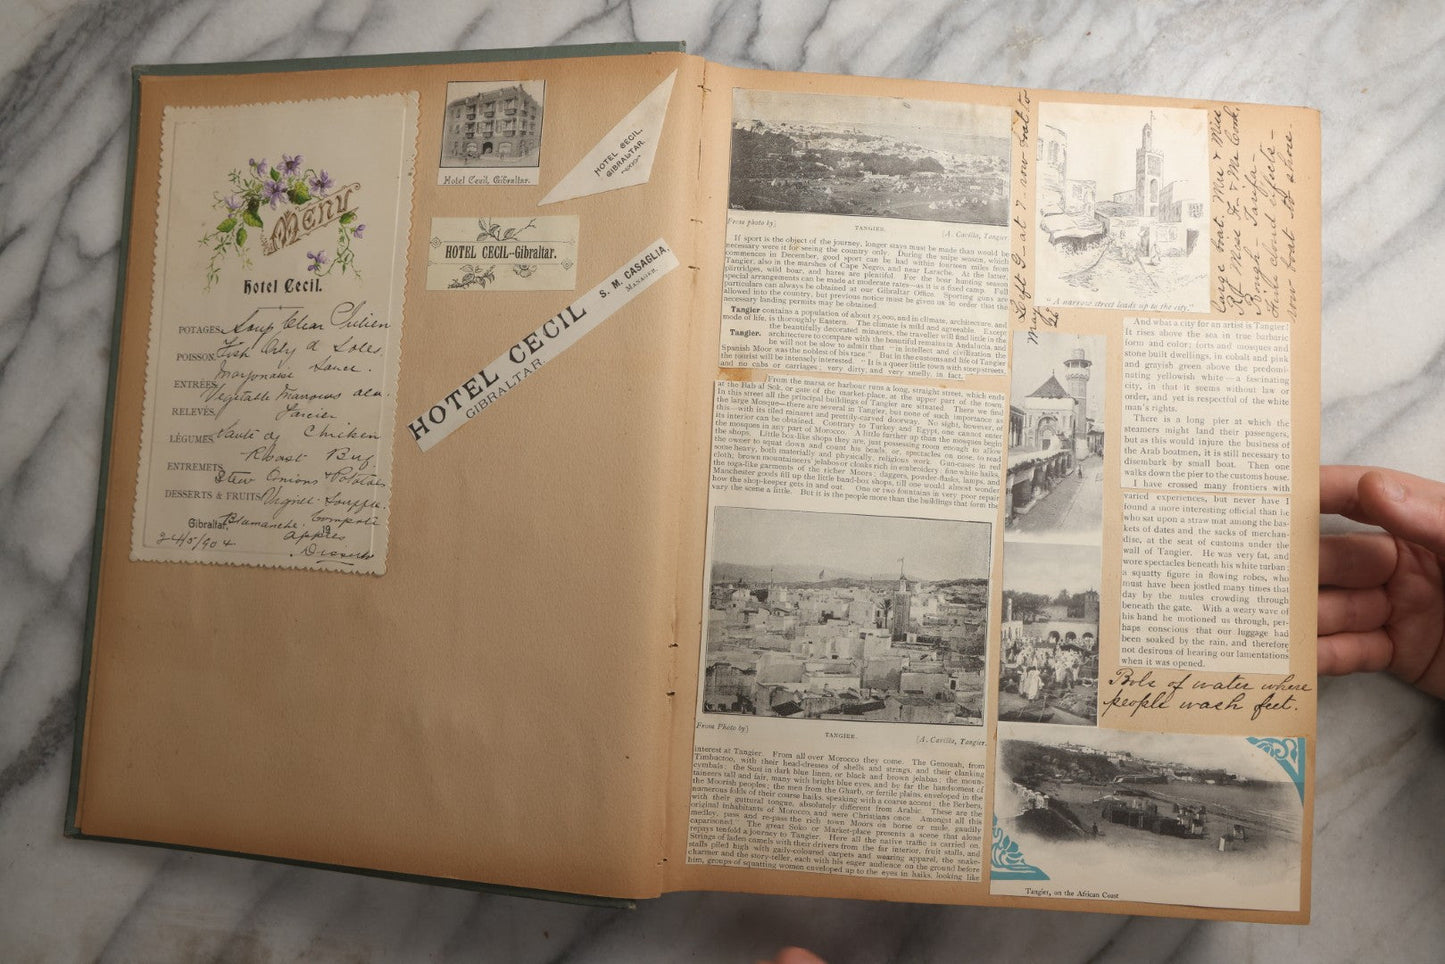 Menu
Hotel Cecil.
POTAGES
Soup Clear Julien
POISSON
Fish Orly d Soles.
Mayonaise Sauce.
ENTRÉES
Vegetable Marrows a la
RELEVÉS
Fancier
LÉGUMES
Saute of Chicken
Roast Beef
ENTREMETS
Stew Onions & Potatoes
DESSERTS & FRUITS
Souffle
Gibraltar, 19
Blamanche. Compote
24/5/904
Apples
Desserts
Hotel Cecil, Gibraltar.
HOTEL CECIL,
GIBRALTAR.
HOTEL CECIL--Gibraltar.
HOTEL CECIL
GIBRALTAR.
S. M. CASAGLIA,
MANAGER.
From photo by)
TANGIER.
(A. Cavilla, Tangier
If sport is the object of the journey, longer stays must be made than would be
necessary were it for seeing the country only. During the snipe season, which
commences in December, good sport can be had within fourteen miles from
Tangier, also in the marshes of Cape Negro, and near Larache. At the latter,
partridges, wild boar, and hares are plentiful. For boar hunting season
special arrangements can be made at moderate rates—as it is a fixed camp. Full
particulars can always be obtained at our Gibraltar Office. Sporting guns are
allowed into the country, but previous notice must be given us in order that the
necessary landing permits may be obtained.
Tangier contains a population of about 25,000, and in climate, architecture, and
mode of life, is thoroughly Eastern. The climate is mild and agreeable. Except
the beautifully decorated minarets, the traveller will find little in the
Tangier. architecture to compare with the beautiful remains in Andalusia, and
he will not be slow to admit that "in intellect and civilization the
Spanish Moor was the noblest of his race." But in the customs and life of Tangier
the tourist will be intensely interested. "It is a queer little town with steep streets,
and no cabs or carriages; very dirty, and very smelly, in fact.
From the marsa or harbour runs a long, straight street, which ends
at the Bab al Sok, or gate of the market-place, at the upper part of the town.
In this street all the principal buildings of Tangier are situated. There we find
the large Mosque—there are several in Tangier, but none of such importance as
this—with its tiled minaret and prettily-carved doorway. No sight, however, of
its interior can be obtained. Contrary to Turkey and Egypt, one cannot enter
the mosques in any part of Morocco. A little further up than the mosques begin
the shops. Little box-like shops they are, just possessing room enough to allow
the owner to squat down and count his beads, or, spectacles on nose, to read
some heavy, both materially and physically, religious work. Gun-cases in red
cloth; brown mountaineers' jelabs or cloaks rich in embroidery; fine white haiks,
the toga-like garments of the richer Moors; daggers, powder-flasks, lamps, and
Manchester goods fill up the little band-box shops, till one would almost wonder
how the shop-keeper gets in and out. One or two fountains in very poor repair
vary the scene a little. But it is the people more than the buildings that form the
From Photo by)
TANGIER.
(A. Cavilla, Tangier.
interest at Tangier. From all over Morocco they come. The Genouah, from
Timbuctoo, with their head-dresses of shells and strings, and their clanking
cymbals; the Susi in dark blue linen, or black and brown jelabas; the moun-
taineers tall and fair, many with bright blue eyes, and by far the handsomest of
the Moorish peoples; the men from the Gharb, or fertile plains, enveloped in the
numerous folds of their coarse haiks, speaking with a coarse accent; the Berbers,
with their guttural tongue, absolutely different from Arabic. These are the
original inhabitants of Morocco, and were Christians once. Amongst all this
medley, pass and re-pass the rich town Moors on horse or mule, gaudily
caparisoned." The great Soko or Market-place presents a scene that alone
repays tenfold a journey to Tangier. Here all the native traffic is carried on.
Strings of laden camels with their drivers from the far interior, fruit stalls, and
stalls piled high with gaily-coloured carpets and wearing apparel, the snake-
charmer and the story-teller, each with his eager audience on the ground before
him, groups of squatting women enveloped up to the eyes in haiks, looking like
Left G- at 7. row boat to
May 22
"A narrow street leads up to the city."
large boat. Mrs & Miss
Miss & Mr Cook.
Bough- Tarifa-
Guide about Egypt-
row boat to shore.
And what a city for an artist is Tangier!
It rises above the sea in true barbaric
form and color; forts and mosques and
stone built dwellings, in cobalt and pink
and grayish green above the predomi-
nating yellowish white—a fascinating
city, in that it seems without law or
order, and yet is respectful of the white
man's rights.
There is a long pier at which the
steamers might land their passengers,
but as this would injure the business of
the Arab boatmen, it is still necessary to
disembark by small boat. Then one
walks down the pier to the customs house.
I have crossed many frontiers with
varied experiences, but never have I
found a more interesting official than he
who sat upon a straw mat among the bas-
kets of dates and the sacks of merchan-
dise, at the seat of customs under the
wall of Tangier. He was very fat, and
wore spectacles beneath his white turban;
a squatty figure in flowing robes, who
must have been jostled many times that
day by the mules crowding through
beneath the gate. With a weary wave of
his hand he motioned us through, per-
haps conscious that our luggage had
been soaked by the rain, and therefore
not desirous of hearing our lamentations
when it was opened.
Bols of water where
people wash feet.
Tangier, on the African Coast